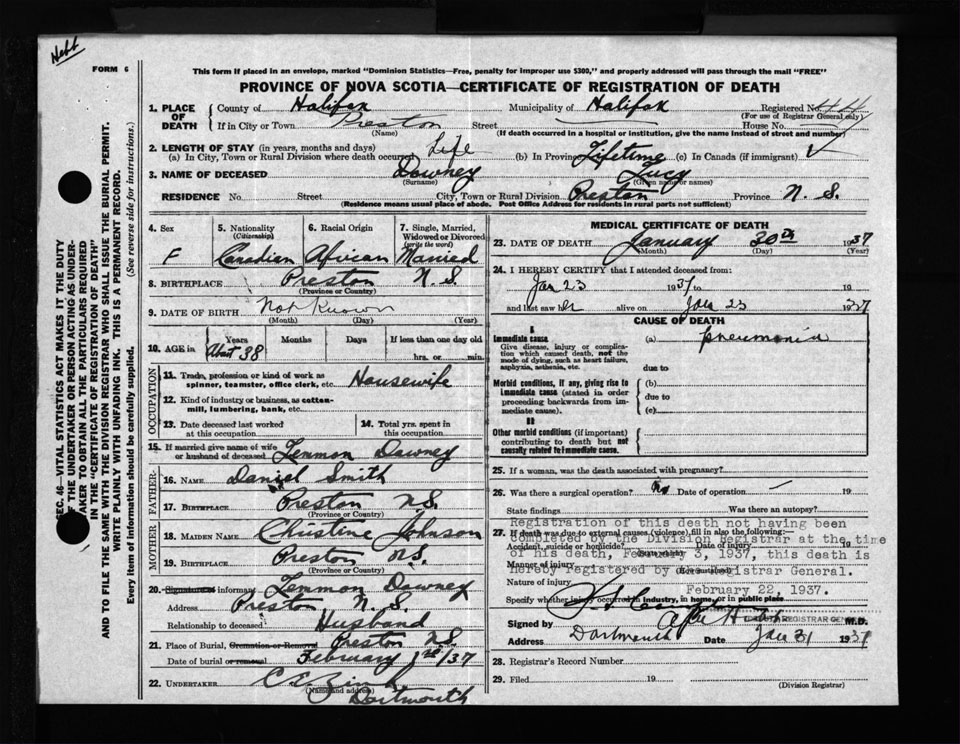 Hebb
FORM 6
This form if placed in an envelope, marked "Dominion Statistics—Free, penalty for improper use $300," and properly addressed will pass through the mail "FREE"
PROVINCE OF NOVA SCOTIA—CERTIFICATE OF REGISTRATION OF DEATH
SEC. 46—VITAL STATISTICS ACT MAKES IT THE DUTY
OF THE UNDERTAKER OR PERSON ACTING AS UNDER-
TAKER TO OBTAIN ALL THE PARTICULARS REQUIRED
IN THE "CERTIFICATE OF REGISTRATION OF DEATH"
AND TO FILE THE SAME WITH THE DIVISION REGISTRAR WHO SHALL ISSUE THE BURIAL PERMIT.
WRITE PLAINLY WITH UNFADING INK. THIS IS A PERMANENT RECORD.
Every item of information should be carefully supplied. (See reverse side for instructions.)
1. PLACE OF DEATH County of Halifax Municipality of Halifax Registered No. 44
(For use of Registrar General only)
If in City or Town Preston Street House No.
(Name) (If death occurred in a hospital or institution, give the name instead of street and number)
2. LENGTH OF STAY (in years, months and days)
(a) In City, Town or Rural Division where death occurred Life (b) In Province Lifetime (c) In Canada (if immigrant)
3. NAME OF DECEASED Downey Lucy
(Surname) (Given name or names)
RESIDENCE No. Street City, Town or Rural Division Preston Province N. S.
(Residence means usual place of abode. Post Office Address for residents in rural parts not sufficient)
4. Sex 5. Nationality (Citizenship) 6. Racial Origin 7. Single, Married, Widowed or Divorced (write the word)
F Canadian African Married
8. BIRTHPLACE Preston N.S.
(Province or Country)
9. DATE OF BIRTH Not Known
(Month) (Day) (Year)
10. AGE in Years Months Days If less than one day old
About 38 hrs. or min.
OCCUPATION
11. Trade, profession or kind of work as
spinner, teamster, office clerk, etc. Housewife
12. Kind of industry or business, as cotton-
mill, lumbering, bank, etc.
13. Date deceased last worked at this occupation 14. Total yrs. spent in this occupation
15. If married give name of wife
or husband of deceased Lemmon Downey
FATHER
16. NAME Daniel Smith
17. BIRTHPLACE Preston N.S.
(Province or Country)
MOTHER
18. MAIDEN NAME Christine Johnson
19. BIRTHPLACE Preston N.S.
(Province or Country)
20. Signature of informant Lemmon Downey
Address Preston N. S.
Relationship to deceased Husband
21. Place of Burial, Cremation or Removal Preston N.S.
Date of burial or removal February 1st/37
22. UNDERTAKER
(Name and address)
Dartmouth
MEDICAL CERTIFICATE OF DEATH
23. DATE OF DEATH January 30th 1937
(Month) (Day) (Year)
24. I HEREBY CERTIFY that I attended deceased from:
Jan 23 1937 to 19
and last saw her alive on Jan 23 1937
CAUSE OF DEATH
I
Immediate cause. (a) pneumonia
Give disease, injury or complica-
tion which caused death, not the
mode of dying, such as heart failure,
asphyxia, asthenia, etc. due to
Morbid conditions, if any, giving rise to (b)
immediate cause (stated in order due to
proceeding backwards from im- (c)
mediate cause).
II
Other morbid conditions (if important)
contributing to death but not
causally related to immediate cause.
25. If a woman, was the death associated with pregnancy?
26. Was there a surgical operation? No Date of operation — 19
State findings Was there an autopsy?
27. If death was due to external causes (violence), fill in also the following:
Accident, suicide or homicide? Date of injury 19
Manner of injury
Nature of injury
Specify whether injury occurred in industry, in home, or in public place
Registration of this death not having been
completed by the Division Registrar at the time
of his death, February 3, 1937, this death is
hereby registered by the Registrar General.
February 22, 1937.
REGISTRAR GENERAL
Signed by M.D.
Address Dartmouth Date Jan 31 1937
28. Registrar's Record Number
29. Filed 19
(Division Registrar)